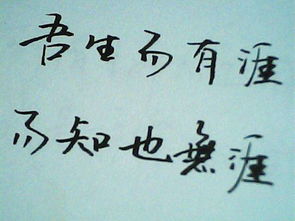 吾生而有涯
而知也無涯